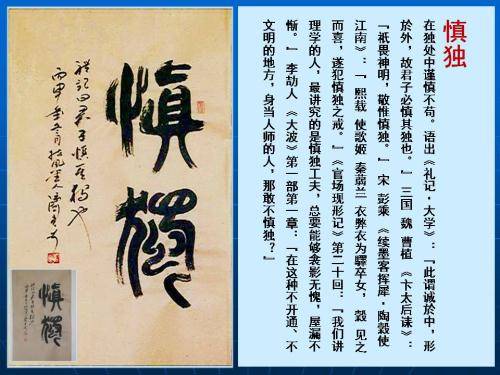 慎独
在独处中谨慎不苟。语出《礼记·大学》:「此谓诚於中,形
於外,故君子必慎其独也。」三国 魏 曹植 《卞太后诔》:
「祇畏神明,敬惟慎独。」宋 彭乘 《续墨客挥犀·陶穀使
江南》:「 熙载 使歌姬 秦蒻兰 衣弊衣为驿卒女, 穀 见之
而喜,遂犯慎独之戒。」《官场现形记》第二十回:「我们讲
理学的人,最讲究的是慎独工夫,总要能够衾影无愧,屋漏不
惭。」 李劼人 《大波》第一部第一章:「在这种不开通、不
文明的地方,身当人师的人,那敢不慎独?」
慎獨
礼记曰君子慎其独也
丙申
慎獨